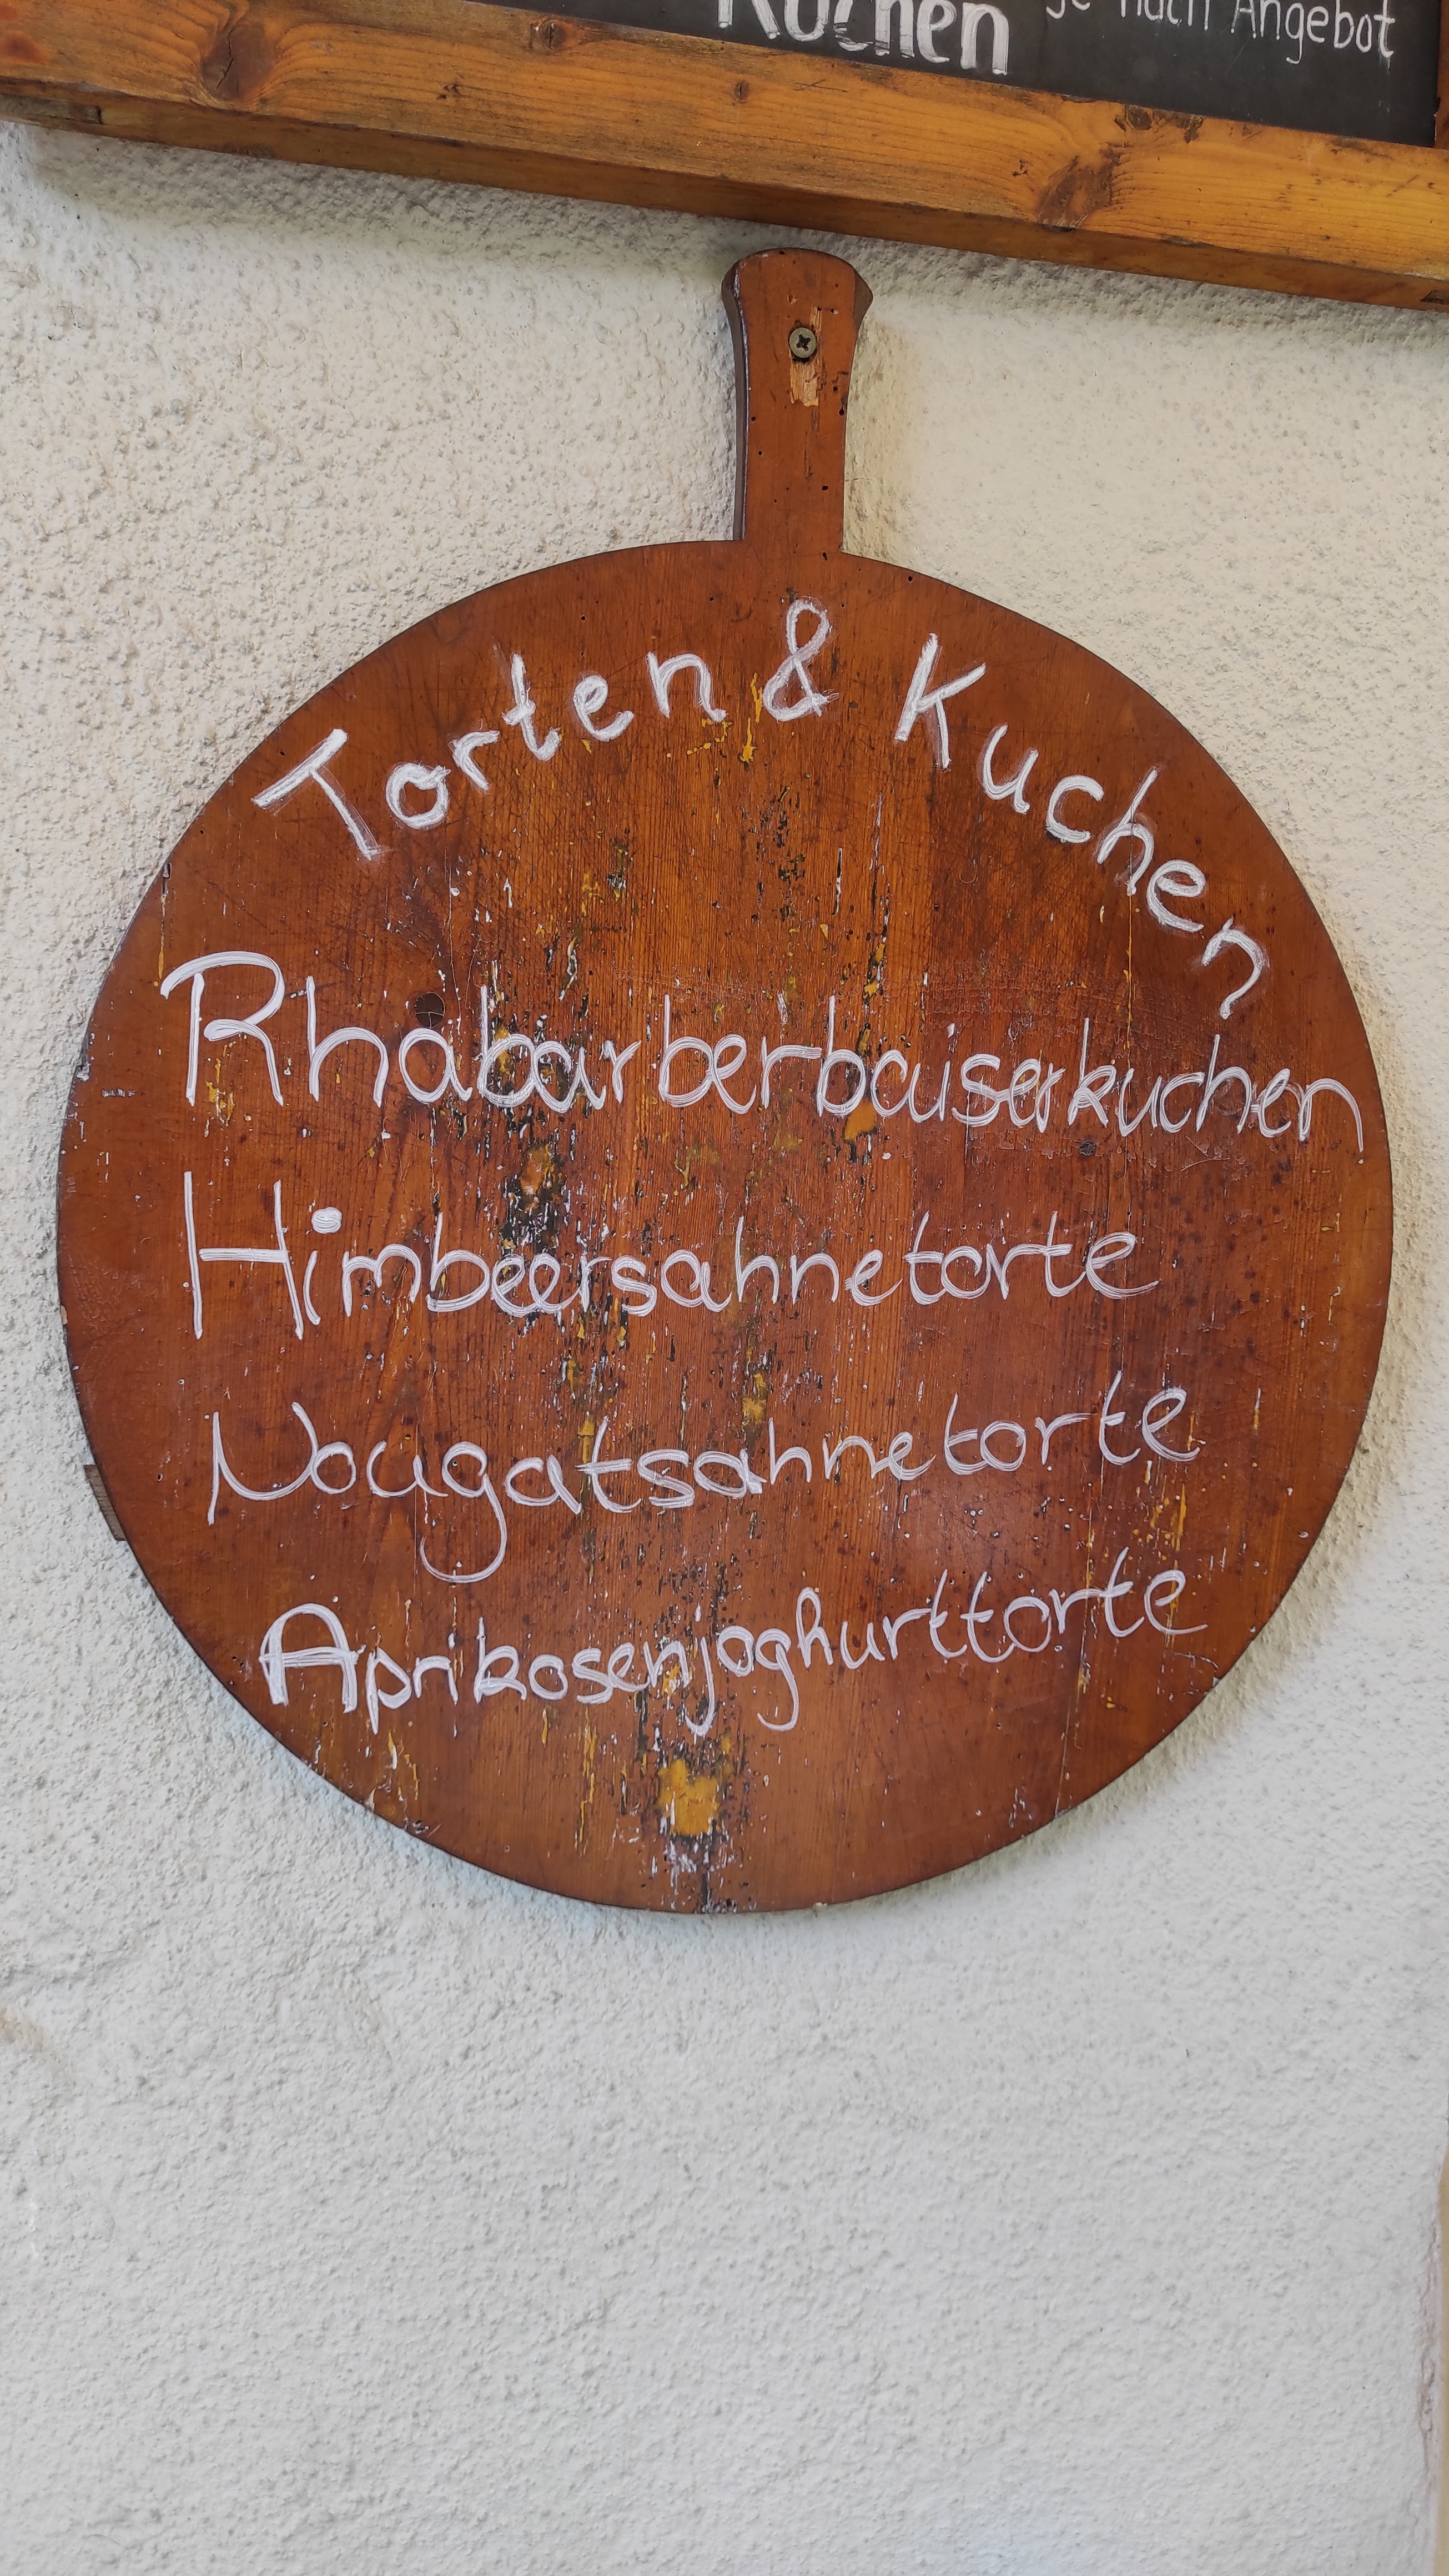 Kuchen je nach Angebot
Torten & Kuchen
Rhabarberbaiserkuchen
Himbeersahnetorte
Nougatsahnetorte
Aprikosenjoghurttorte